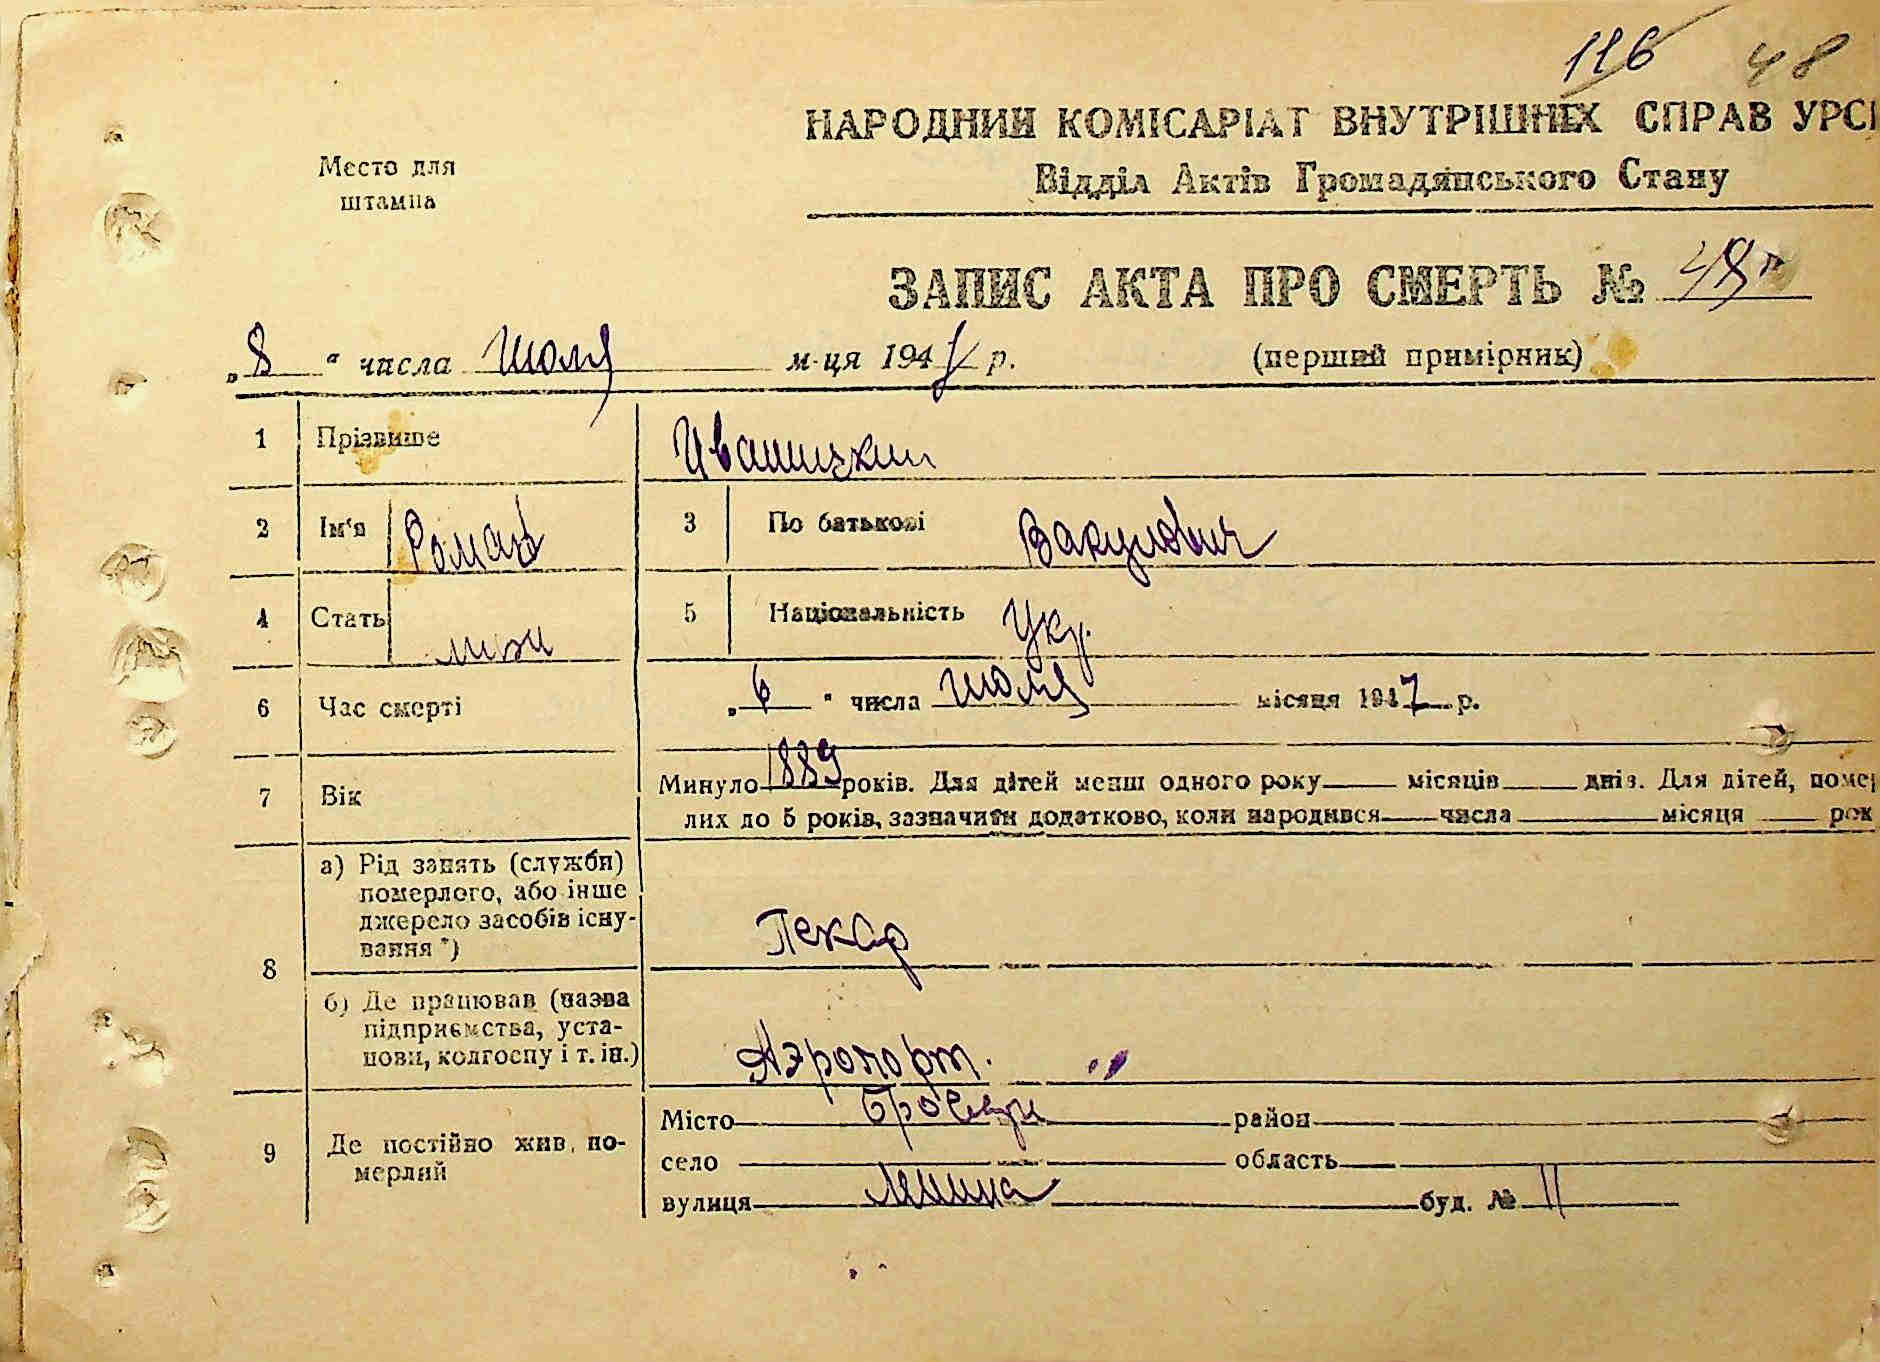 116 48
НАРОДНИЙ КОМІСАРІАТ ВНУТРІШНІХ СПРАВ УРСР
Відділ Актів Громадянського Стану
Место для
штампа
ЗАПИС АКТА ПРО СМЕРТЬ №
„8“ числа Июля м-ця 1947 р. (перший примірник)
1 Прізвище Ивашицкий
2 Ім'я Роман 3 По батькові Вакулович
4 Стать муж 5 Національність Укр.
6 Час смерті „6“ числа Июля місяця 1947 р.
7 Вік Минуло 1889 років. Для дітей менш одного року місяців днів. Для дітей, помер-
лих до 5 років, зазначити додатково, коли народився числа місяця рок
8 а) Рід занять (служби)
померлого, або інше
джерело засобів існу-
вання *) Пекар
б) Де працював (назва
підприємства, уста-
нови, колгоспу і т. ін.) Аэропорт.
9 Де постійно жив, по-
мерлий
Місто Бровары район
село область
вулиця Ленина буд. № 11